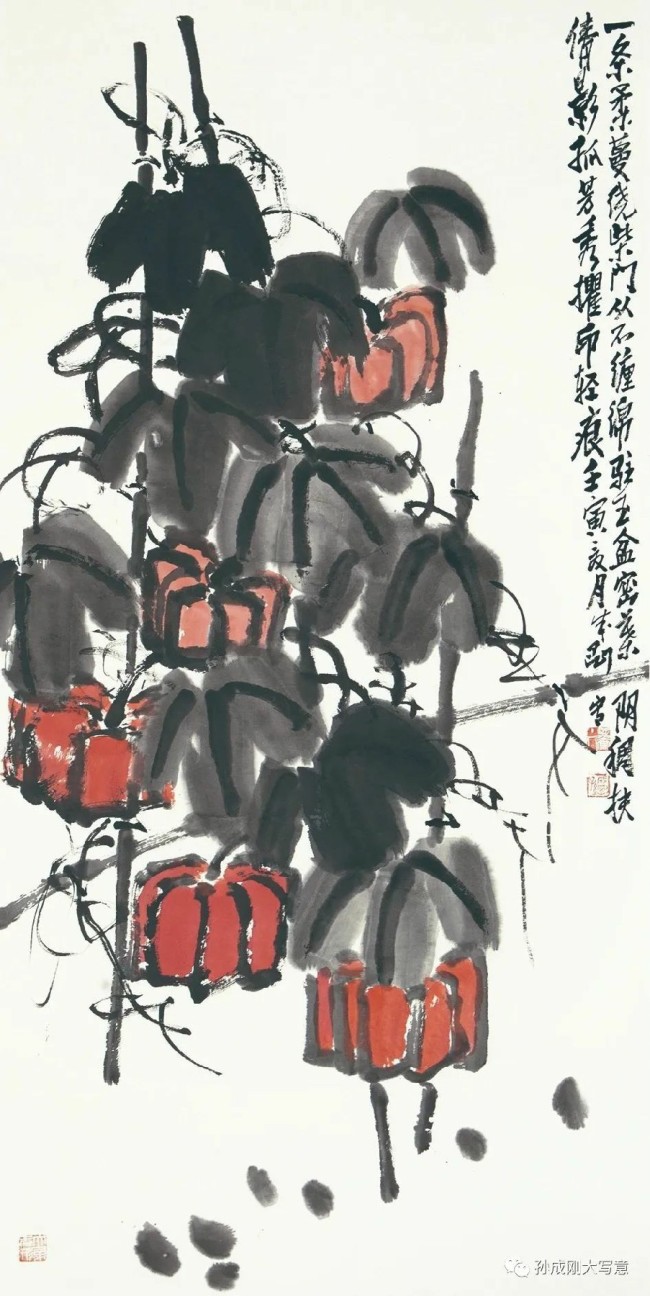 一条柔蔓绕柴门从不缠绵驻玉盆密葉阴稠扶
倩影孤芳秀擢印轻痕壬寅亥月成刚写
孙成刚大写意